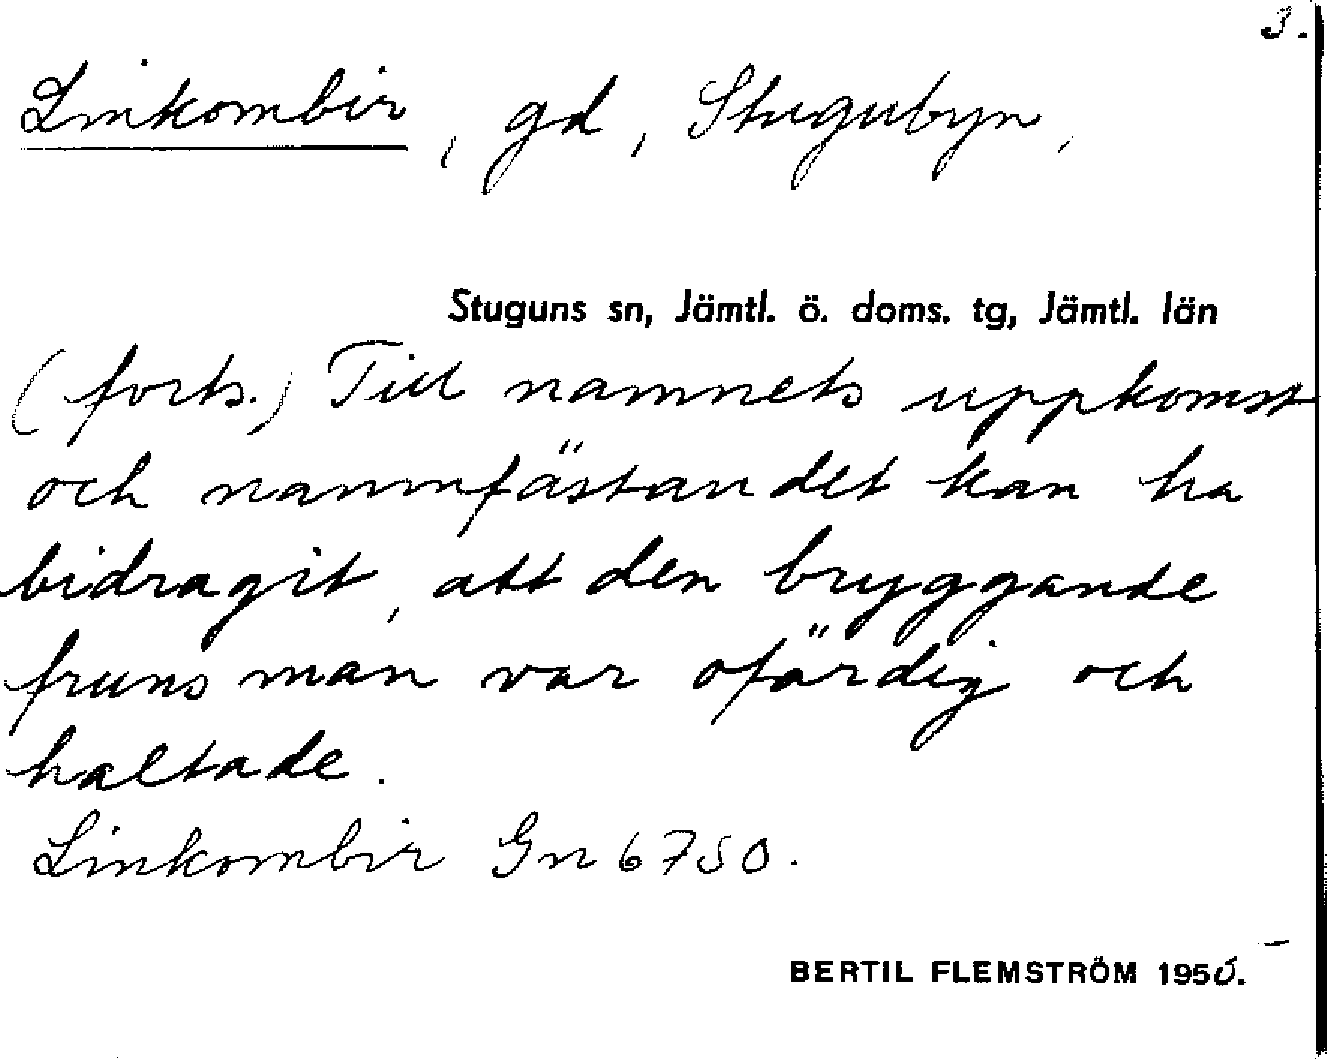 3.
Linkombir, gd, Stugubyn,
Stuguns sn, Jämtl. ö. doms. tg, Jämtl. län
(forts.) Till namnets uppkomst
och namnfästandet kan ha
bidragit, att den bryggande
fruns man var ofärdig och
haltade.
Linkombir Gn 6750.
BERTIL FLEMSTRÖM 1955.